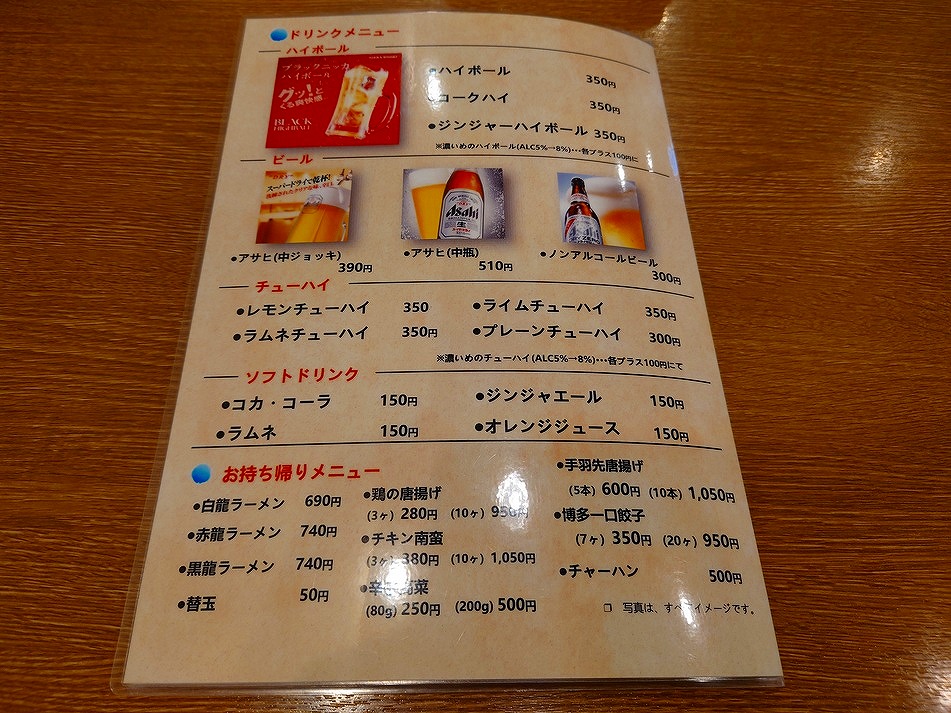 ドリンクメニュー
ハイボール
ブラックニッカ
ハイボール
グッ!と
くる爽快感
BLACK
HIGHBALL
●ハイボール 350円
コークハイ 350円
●ジンジャーハイボール 350円
※濃いめのハイボール(ALC5%→8%)・・・各プラス100円に
ビール
スーパードライで乾杯!
Asahi
生
●アサヒ(中ジョッキ) 390円
●アサヒ(中瓶) 510円
●ノンアルコールビール 300円
チューハイ
●レモンチューハイ 350 ●ライムチューハイ 350円
●ラムネチューハイ 350円 ●プレーンチューハイ 300円
※濃いめのチューハイ(ALC5%→8%)・・・各プラス100円にて
ソフトドリンク
●コカ・コーラ 150円 ●ジンジャエール 150円
●ラムネ 150円 ●オレンジジュース 150円
お持ち帰りメニュー
●白龍ラーメン 690円
●赤龍ラーメン 740円
●黒龍ラーメン 740円
●替玉 50円
●鶏の唐揚げ
(3ヶ) 280円 (10ヶ) 950円
●チキン南蛮
(3ヶ) 380円 (10ヶ) 1,050円
●辛子高菜
(80g) 250円 (200g) 500円
●手羽先唐揚げ
(5本) 600円 (10本) 1,050円
●博多一口餃子
(7ヶ) 350円 (20ヶ) 950円
●チャーハン 500円
❐ 写真は、すべてイメージです。